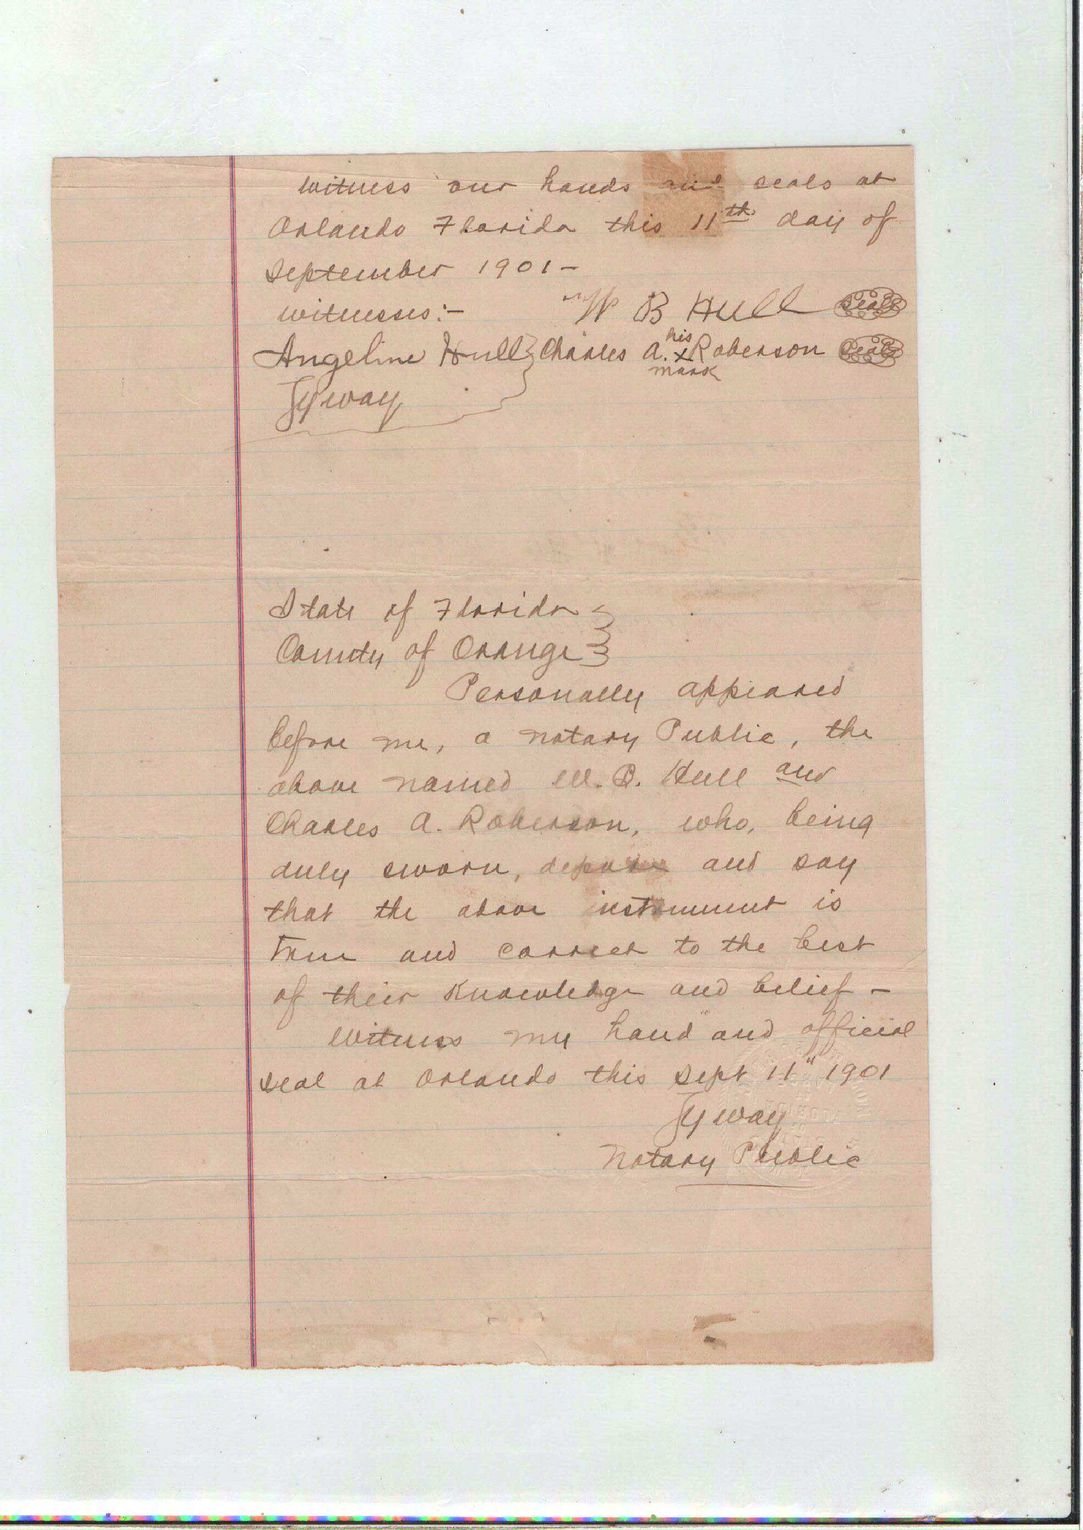 Witness our hands and seals at
Orlando Florida this 11th day of
September 1901 -
Witnesses:- W B Hull Seal
Angeline Hull } Charles A. his x mark Roberson Seal
Jy way
State of Florida }
County of Orange }
Personally appeared
before me, a Notary Public, the
above named W. B. Hull and
Charles A. Roberson, who, being
duly sworn, depose and say
that the above instrument is
true and correct to the best
of their knowledge and belief -
Witness my hand and official
seal at Orlando this Sept 11" 1901
Jy way
Notary Public